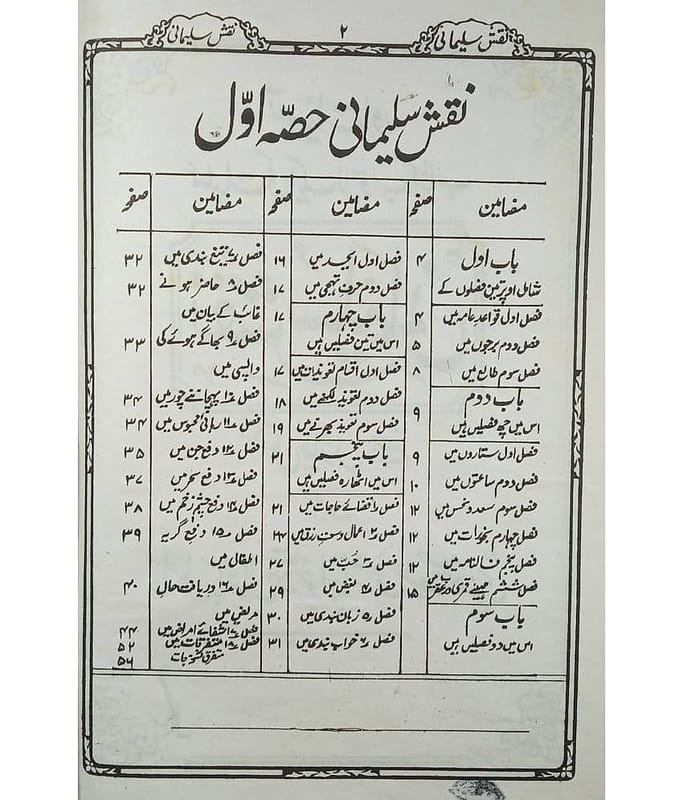 نقش سلیمانی
۲
نقش سلیمانی
نقش سلیمانی حصّہ اوّل
مضامین صفحہ مضامین صفحہ مضامین صفحہ
باب اول ۴
شامل اوپر تین فصلوں کے
فصل اول قواعد عامہ میں ۴
فصل دوم برجوں میں ۵
فصل سوم طالع میں ۸
باب دوم ۹
اس میں چھ فصلیں ہیں
فصل اول ستاروں میں ۹
فصل دوم ساعتوں میں ۱۰
فصل سوم سعد و نحس میں ۱۲
فصل چہارم بخورات میں ۱۲
فصل پنجم فالنامہ میں ۱۲
فصل ششم مہینے قمری در عقرب میں ۱۵
باب سوم
اس میں دو فصلیں ہیں
فصل اول ابجد میں ۱۶
فصل دوم حروف تہجی میں ۱۷
باب چہارم ۱۷
اس میں تین فصلیں ہیں
فصل اول اقسام تعویذ میں ۱۷
فصل دوم تعویذ لکھنے میں ۱۸
فصل سوم تعویذ بھرنے میں ۱۹
باب پنجم ۲۱
اس میں اٹھارہ فصلیں ہیں
فصل ۱ قضائے حاجات میں ۲۱
فصل ۲ اعمال وسعت رزق میں ۲۴
فصل ۳ حُبّ میں ۲۷
فصل ۴ بغض میں ۲۹
فصل ۵ زبان بندی میں ۳۰
فصل ۶ خواب بندی میں ۳۱
فصل ۷ تیغ بندی میں ۳۲
فصل ۸ حاضر ہونے ۳۲
غائب کے بیان میں
فصل ۹ بھاگے ہوئے کی ۳۳
واپسی میں
فصل ۱۰ پہچاننے چور میں ۳۴
فصل ۱۱ رہائی محبوس میں ۳۴
فصل ۱۲ دفع جن میں ۳۵
فصل ۱۳ دفع سحر میں ۳۷
فصل ۱۴ دفع چشم زخم میں ۳۸
فصل ۱۵ دفع گریہ ۳۹
اطفال میں
فصل ۱۶ دریافت حال ۴۰
مریض میں
فصل ۱۷ شفائے امراض میں ۴۴
فصل ۱۸ متفرقات میں ۵۲
متفرق نسخہ جات ۵۶